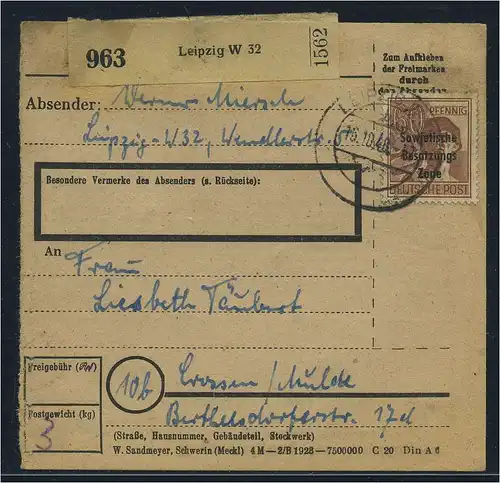 963
Leipzig W 32
1562
Zum Aufkleben
der Freimarken
durch
den Absender
Absender: Werner Miersch
Leipzig W32, Wendlerstr. 6
PFENNIG
Sowjetische
Besatzungs
Zone
DEUTSCHE POST
LEIPZIG
13.10.48
Besondere Vermerke des Absenders (s. Rückseite):
An
Frau
Liesbeth Täubert
Freigebühr (RM)
Postgewicht (kg)
3
10b
Crossen/Mulde
Berthelsdorferstr. 17d
(Straße, Hausnummer, Gebäudeteil, Stockwerk)
W. Sandmeyer, Schwerin (Meckl) 4 M – 2/B 1928 – 7500000 C 20 Din A 6